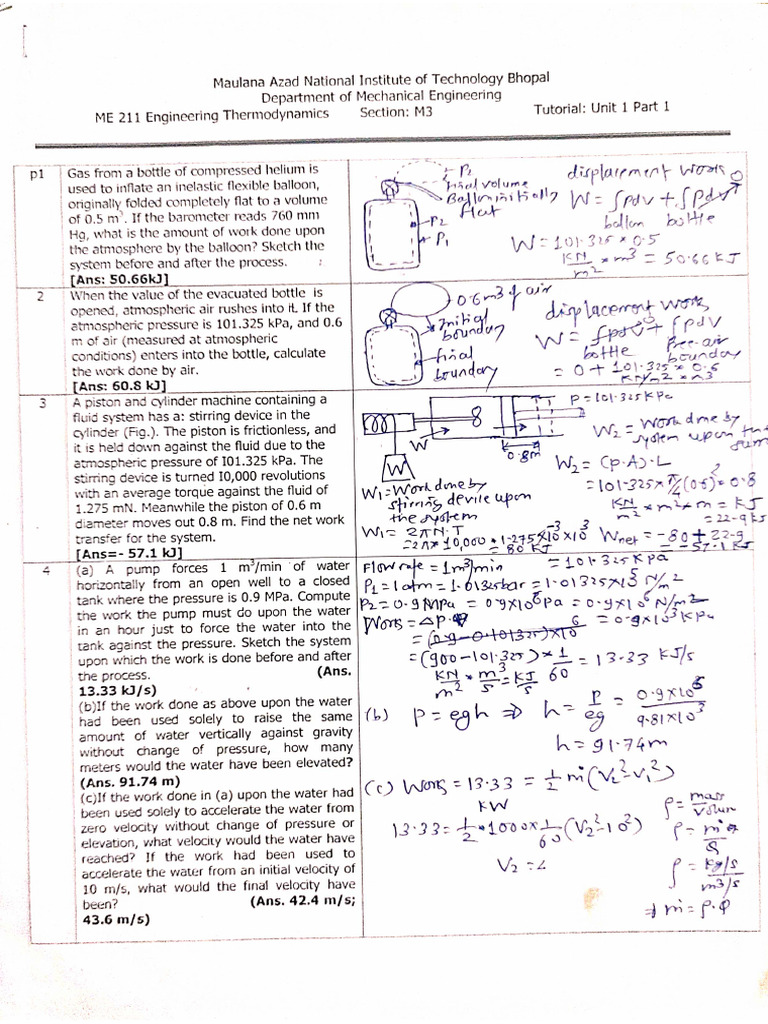 Maulana Azad National Institute of Technology Bhopal
Department of Mechanical Engineering
ME 211 Engineering Thermodynamics Section: M3 Tutorial: Unit 1 Part 1
p1
Gas from a bottle of compressed helium is
used to inflate an inelastic flexible balloon,
originally folded completely flat to a volume
of 0.5 m³. If the barometer reads 760 mm
Hg, what is the amount of work done upon
the atmosphere by the balloon? Sketch the
system before and after the process.
[Ans: 50.66kJ]
P2
final volume
Ballon initially
flat
P2
P1
displacement work
W = ∫pdv + ∫pdv 0
ballon bottle
W = 101.325 * 0.5
KN/m² * m³ = 50.66 KJ
2
When the value of the evacuated bottle is
opened, atmospheric air rushes into it. If the
atmospheric pressure is 101.325 kPa, and 0.6
m of air (measured at atmospheric
conditions) enters into the bottle, calculate
the work done by air.
[Ans: 60.8 kJ]
0.6m3 of air
initial
boundary
final
boundary
displacement work
W = ∫pdv 0 + ∫pdv
bottle free-air
boundary
= 0 + 101.325 * 0.6
KN/m² * m3
3
A piston and cylinder machine containing a
fluid system has a: stirring device in the
cylinder (Fig.). The piston is frictionless, and
it is held down against the fluid due to the
atmospheric pressure of I01.325 kPa. The
stirring device is turned I0,000 revolutions
with an average torque against the fluid of
1.275 mN. Meanwhile the piston of 0.6 m
diameter moves out 0.8 m. Find the net work
transfer for the system.
[Ans=- 57.1 kJ]
P=101.325KPa
W
W
0.8m
W1=Work done by
stirring device upon
the system
W1 = 2πN.T
=2π*10,000*1.275*10⁻³*10³
= 80 KJ
W2=Work done by
system upon the
W2 = (P.A).L
=101.325*π/4(0.6)²*0.8
KN/m² * m² * m = KJ
=22.9 KJ
Wnet = -80 + 22.9
= -57.1 KJ
4
(a) A pump forces 1 m³/min of water
horizontally from an open well to a closed
tank where the pressure is 0.9 MPa. Compute
the work the pump must do upon the water
in an hour just to force the water into the
tank against the pressure. Sketch the system
upon which the work is done before and after
the process. (Ans.
13.33 kJ/s)
(b)If the work done as above upon the water
had been used solely to raise the same
amount of water vertically against gravity
without change of pressure, how many
meters would the water have been elevated?
(Ans. 91.74 m)
(c)If the work done in (a) upon the water had
been used solely to accelerate the water from
zero velocity without change of pressure or
elevation, what velocity would the water have
reached? If the work had been used to
accelerate the water from an initial velocity of
10 m/s, what would the final velocity have
been? (Ans. 42.4 m/s;
43.6 m/s)
Flow rate = 1m3/min = 101.325 KPa
P1 = 1atm = 1.01325bar = 1.01325X10⁵ N/m²
P2 = 0.9 MPa = 0.9X10⁶Pa = 0.9X10⁶ N/m²
= 0.9X10³ KPa
Work = ΔP.
= (0.9-0.101325)*10⁶
= (900-101.325)*1/60 = 13.33 KJ/s
KN/m² * m³/s = KJ/s
(b) P = egh ⇒ h = P/eg = 0.9X10⁶/9.81X10³
h = 91.74 m
(c) Work = 13.33 = 1/2 ṁ(V2²-V1²)
KW
13.33 = 1/2*1000*1/60(V2²-10²)
V2 = 4
ρ = mass/volum
ρ = ṁ/Q
ρ = Kg/s/m3/s
⇒ ṁ = ρ.Q